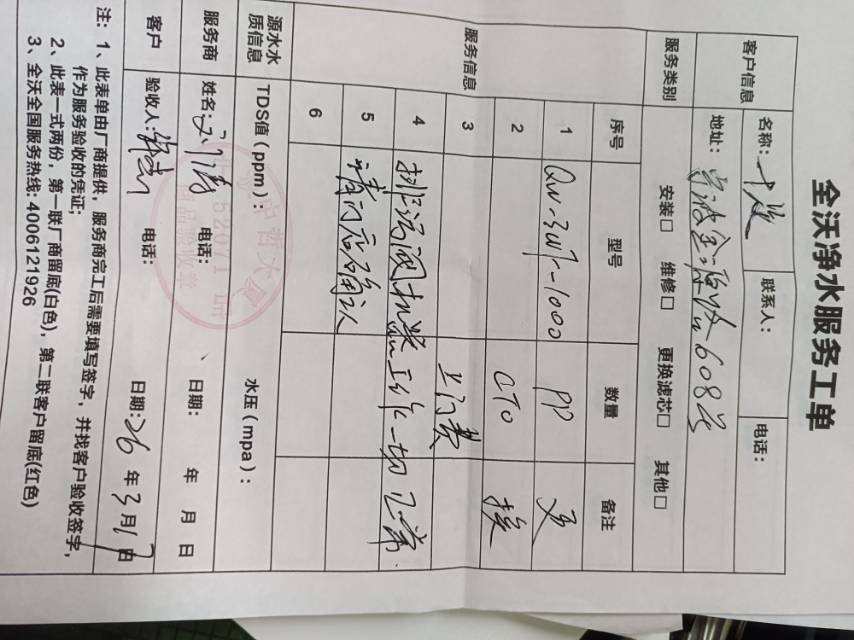 全沃净水服务工单
客户信息 名称: 联系人: 电话:
地址: 608号
服务类别 安装□ 维修□ 更换滤芯□ 其他□
服务信息 序号 型号 数量 备注
1 QW-3W7-1000 PP 更
2 CTO 换
3 上门费
4 排污阀 工作一切正常.
5 请门店确认
6
源水水质信息 TDS值(ppm): 水压(mpa):
服务商 姓名: 电话: 日期: 年 月 日
客户 验收人: 电话: 日期:26年3月17日
注: 1、此表单由厂商提供, 服务商完工后需要填写签字, 并找客户验收签字,
作为服务验收的凭证;
2、此表一式两份, 第一联厂商留底(白色), 第二联客户留底(红色)
3、全沃全国服务热线: 4006121926